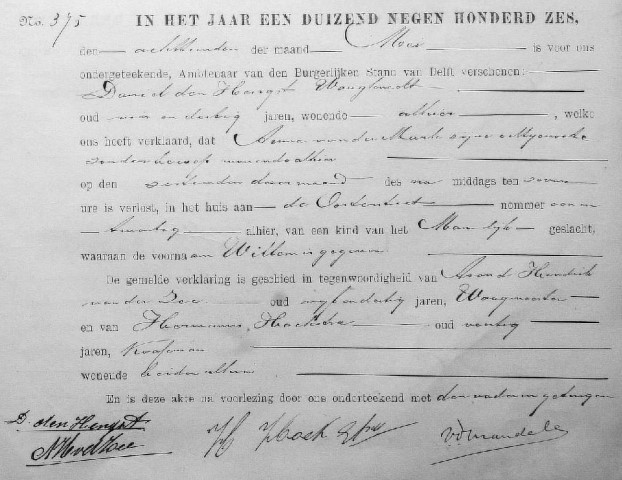 No. 375 IN HET JAAR EEN DUIZEND NEGEN HONDERD ZES,
den achttienden der maand Mei is voor ons
ondergeteekende, Ambtenaar van den Burgerlijken Stand van Delft verschenen:
Daniel den Hengst
oud dertig jaren, wonende alhier, welke
ons heeft verklaard, dat van der Mark zijne Echtgenoote
zonder beroep wonende alhier
op den dezer maand des na middags ten
ure is verlost, in het huis aan de Oosterstraat nommer een en
twintig alhier, van een kind van het Mannelijk geslacht,
waaraan de voornaam Willem is gegeven
De gemelde verklaring is geschied in tegenwoordigheid van Arend Hendrik
van der Zee oud vijf en dertig jaren, Waagmeester
en van Hermanus Hoekstra oud veertig
jaren, Koopman
wonende beiden alhier
En is deze akte na voorlezing door ons onderteekend met den vader en getuigen
D. den Hengst
AHvdZee
H Hoekstra